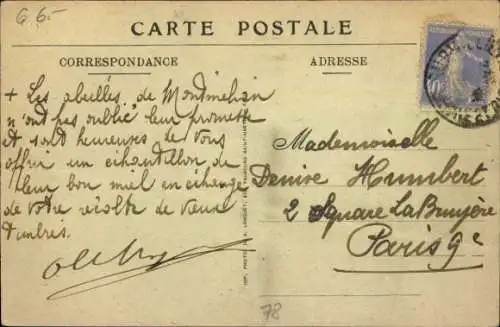 6.65-
CARTE POSTALE
CORRESPONDANCE
ADRESSE
+ Les abeilles de Montmelian
n'ont pas oublié leur promesse
et sont heureuses de vous
offrir un échantillon de
leur bon miel en échange
de votre récolte de vieux
timbres.
Mademoiselle
Denise Humbert
2 Square La Bruyère
Paris 9e
78